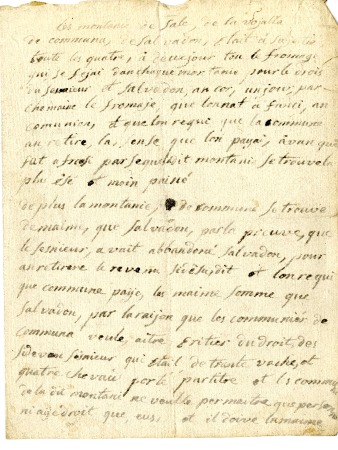 les montanie de sale, de la vojalla
de communa, de Salvadon, était à sujettes
toute les quatre, à deux jour tou le fromage
qui se fjai dan cheque mon tanie pour le drois
du sesnieur et Salvadon, an cor, un jour, par
le fromaje, que
comunion, et que lon requi que la communa
an retire la, sense que lon payai, àvan que
fut par se montanie se trouve la
plu et moin painé
de plus la montanie, de commune se trouve
de maime, que Salvadon, par la preuve, que
le sesnieur, avait abbandoné Salvadon, pour
an retirere le revenu et lon requi
que commune paije, la maime somme que
Salvadon, par la raison que les communiér de
communa veule, aitre éritier du droit des
sidevan sesnieur qui était de trente vache, et
quatre chevau et les
de la dit montani ne veulle permaitre que person
ni aye droit que eus, et il doive la maime